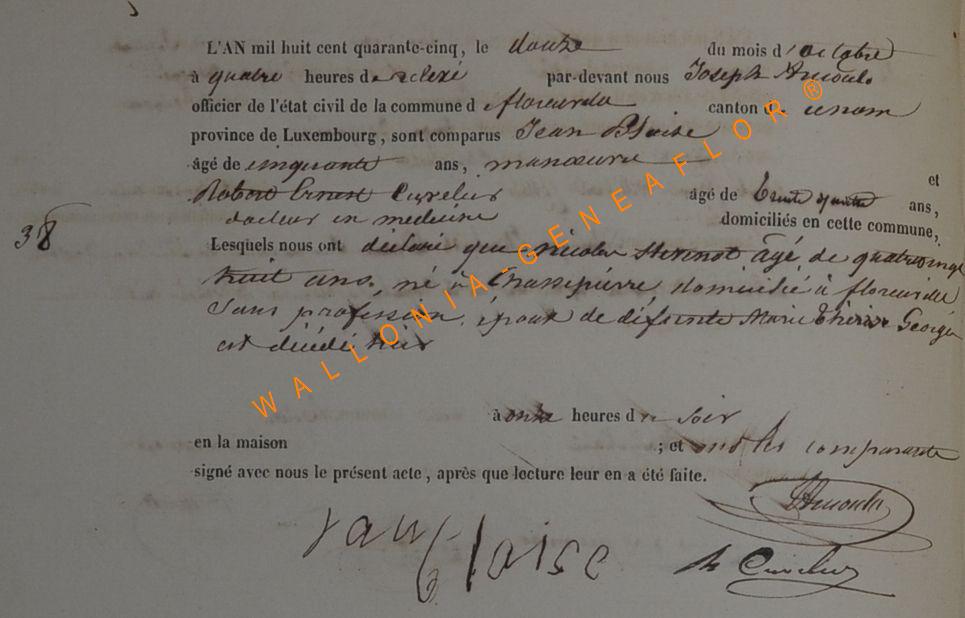 L'AN mil huit cent quarante-cinq, le douze du mois d'octobre
à quatre heures de relevé par-devant nous Joseph Arnould
officier de l'état civil de la commune d florenville canton d
province de Luxembourg, sont comparus Jean Blaise
âgé de cinquante ans, manoeuvre et
Robert Ernest Cuvelier âgé de trente ans,
docteur en medecine domiciliés en cette commune,
38
Lesquels nous ont déclaré que nicolas âgé de quatrevingt
huit ans, né à Chassepierre, domicilié à florenville
Sans profession, époux de défunte Marie thérèse Georges
est décédé hier
à onze heures du soir
en la maison ; et ont les comparants
signé avec nous le présent acte, après que lecture leur en a été faite.
Arnould
Jean Blaise
Cuvelier
WALLONIA-GENEAFLOR ®